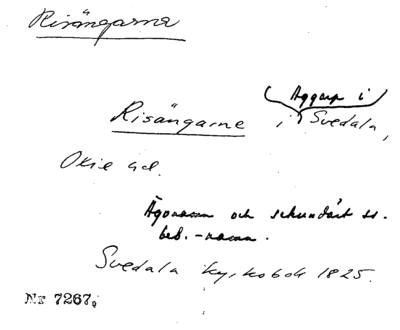 Risängarna
Aggarp i
Risängarne i Svedala,
Oxie hd.
Ägonamn och sekundärt ss.
beb.-namn.
Svedala kyrkobok 1825.
Nr 7267.